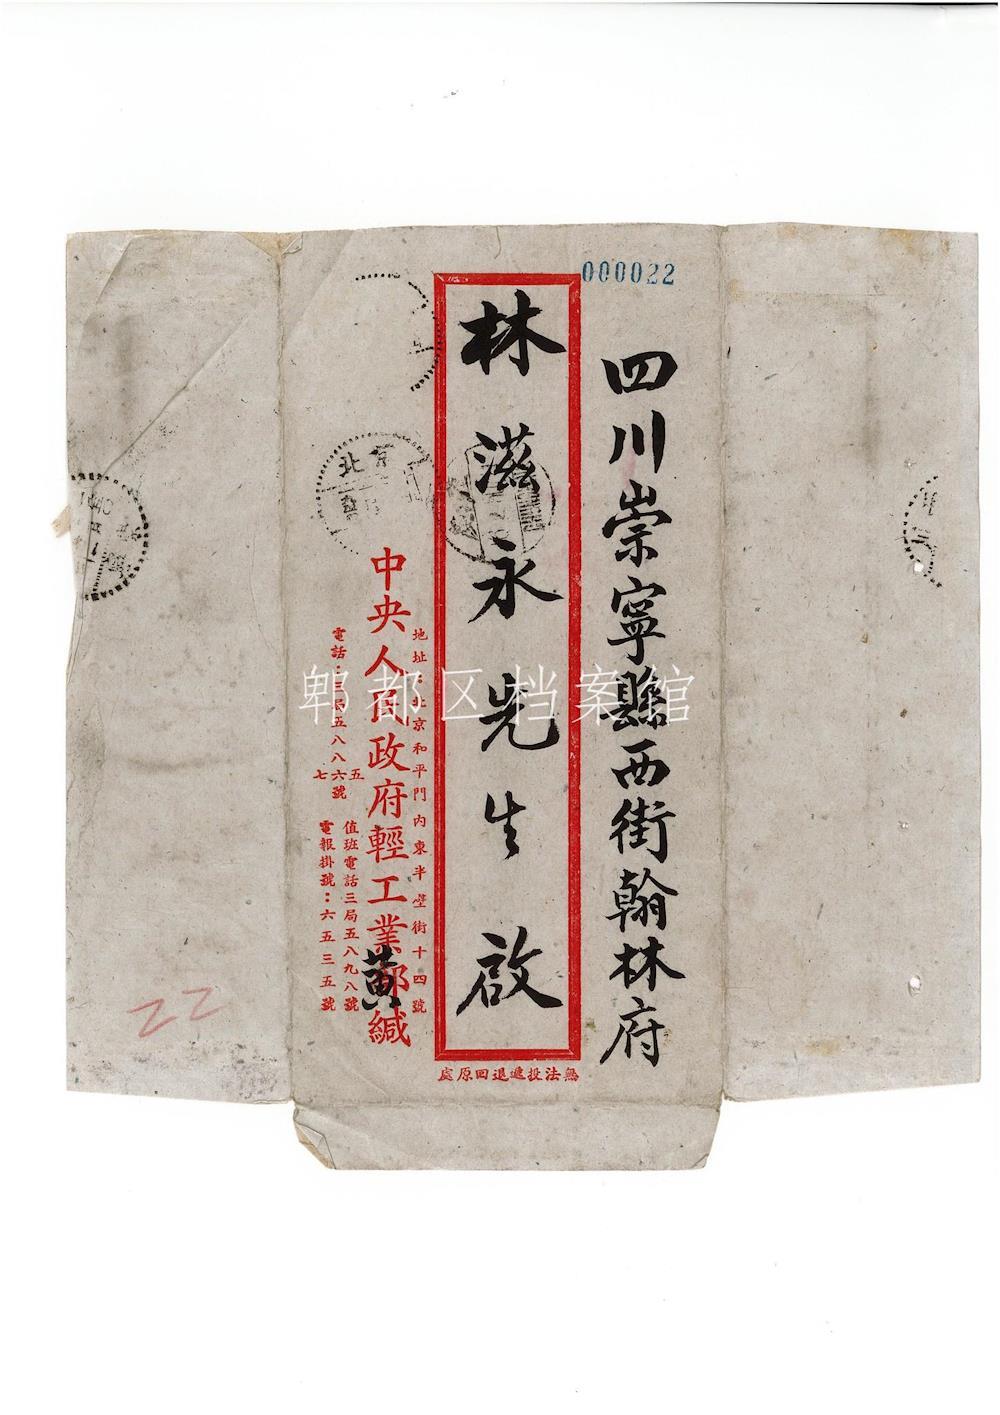 000022
四川崇寧縣西街翰林府
林滋永先生啟
無法投遞退回原處
地址：北京和平門內東半壁街十四號
中央人民政府輕工業部緘
黄
電話：三局五八八六號
五
七
值班電話三局五八九八號
電報掛號：六五三五號
北京
22
郫都区档案馆